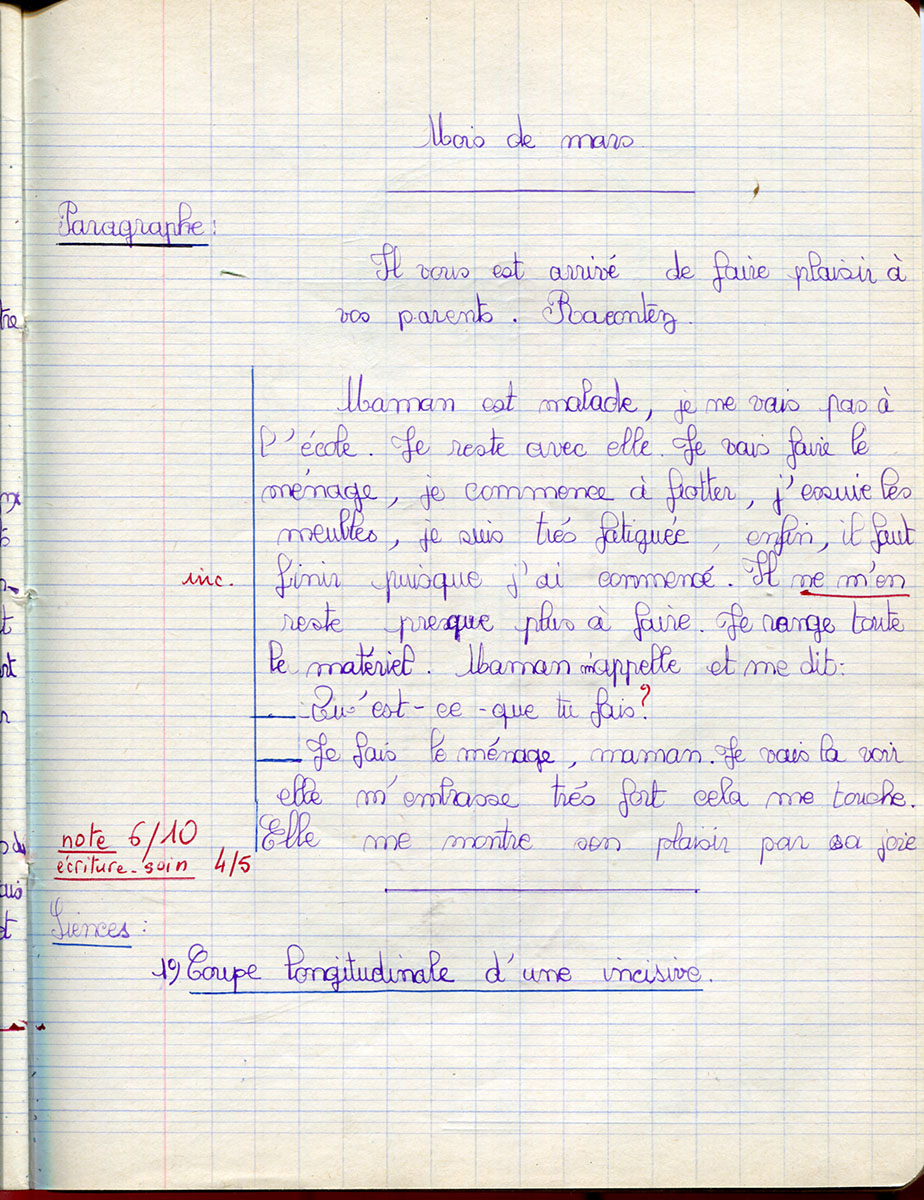 Mois de mars
Paragraphe :
Il vous est arrivé de faire plaisir à
vos parents. Racontez.
Maman est malade, je ne vais pas à
l'école. Je reste avec elle. Je vais faire le
ménage, je commence à frotter, j'essuie les
meubles, je suis trés fatiguée, enfin, il faut
inc. finir puisque j'ai commencé. Il ne m'en
reste presque plus à faire. Je range toute
le matériel. Maman m'appelle et me dit :
— Qu'est-ce-que tu fais ?
— Je fais le ménage, maman. Je vais la voir
elle m'embrasse trés fort cela me touche.
Elle me montre son plaisir par sa joie
note 6/10
écriture-soin 4/5
Siences :
19) Coupe longitudinale d'une incisive.